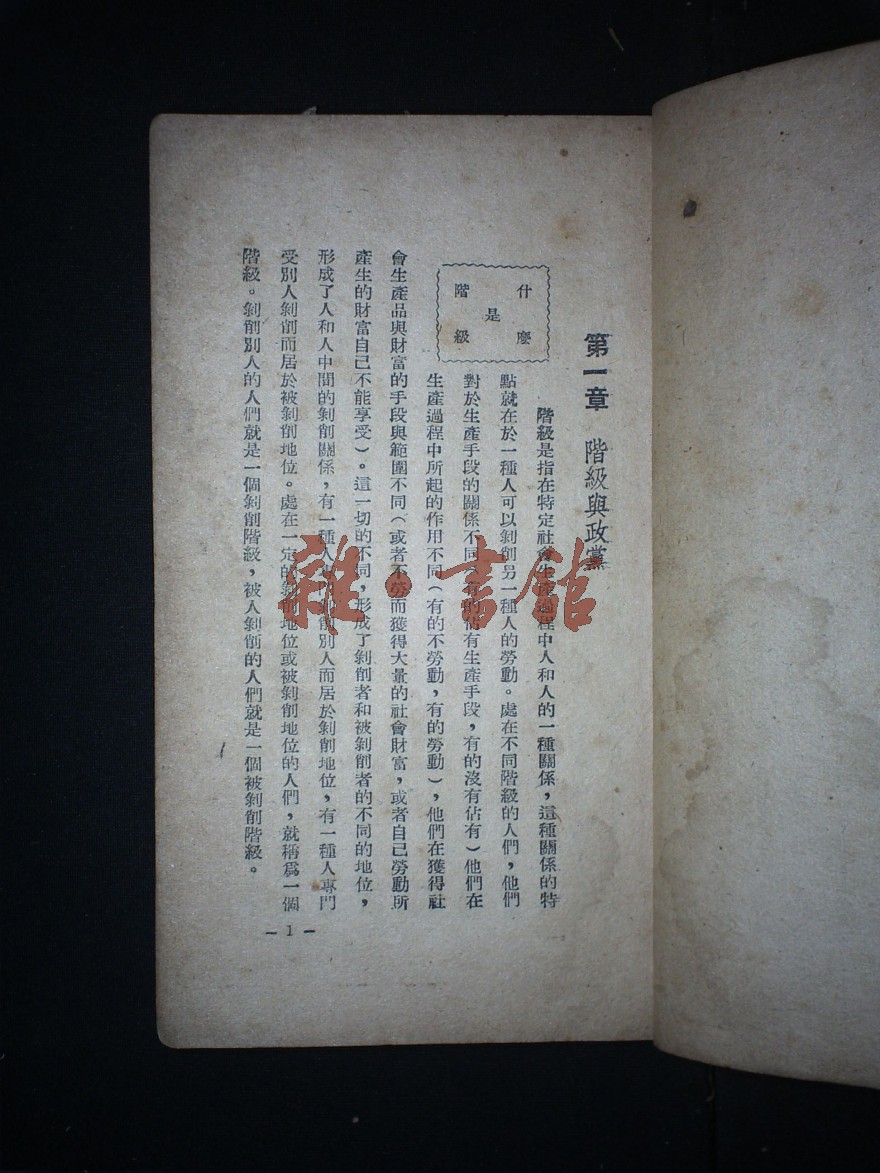 第一章 階級與政黨
什麼
是
階級
階級是指在特定社會生產過程中人和人的一種關係，這種關係的特
點就在於一種人可以剝削另一種人的勞動。處在不同階級的人們，他們
對於生產手段的關係不同（有的佔有生產手段，有的沒有佔有）他們在
生產過程中所起的作用不同（有的不勞動，有的勞動），他們在獲得社
會生產品與財富的手段與範圍不同（或者不勞而獲得大量的社會財富，或者自己勞動所
產生的財富自己不能享受）。這一切的不同，形成了剝削者和被剝削者的不同的地位，
形成了人和人中間的剝削關係，有一種人剝削別人而居於剝削地位，有一種人專門
受別人剝削而居於被剝削地位。處在一定的剝削地位或被剝削地位的人們，就稱爲一個
階級。剝削別人的人們就是一個剝削階級，被人剝削的人們就是一個被剝削階級。
— 1 —
雜·書館